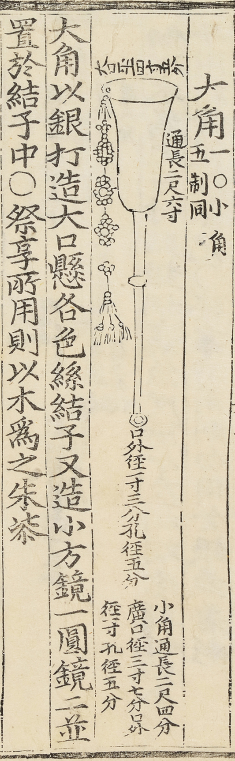 大角一○小角
五制同
通長二尺六寸
口外徑一寸三分孔徑五分
小角通長二尺四分
廣口徑三寸七分口外
徑一寸孔徑五分
大角以銀打造大口懸各色絲結子又造小方鏡一圓鏡一並
置於結子中○祭享所用則以木爲之朱